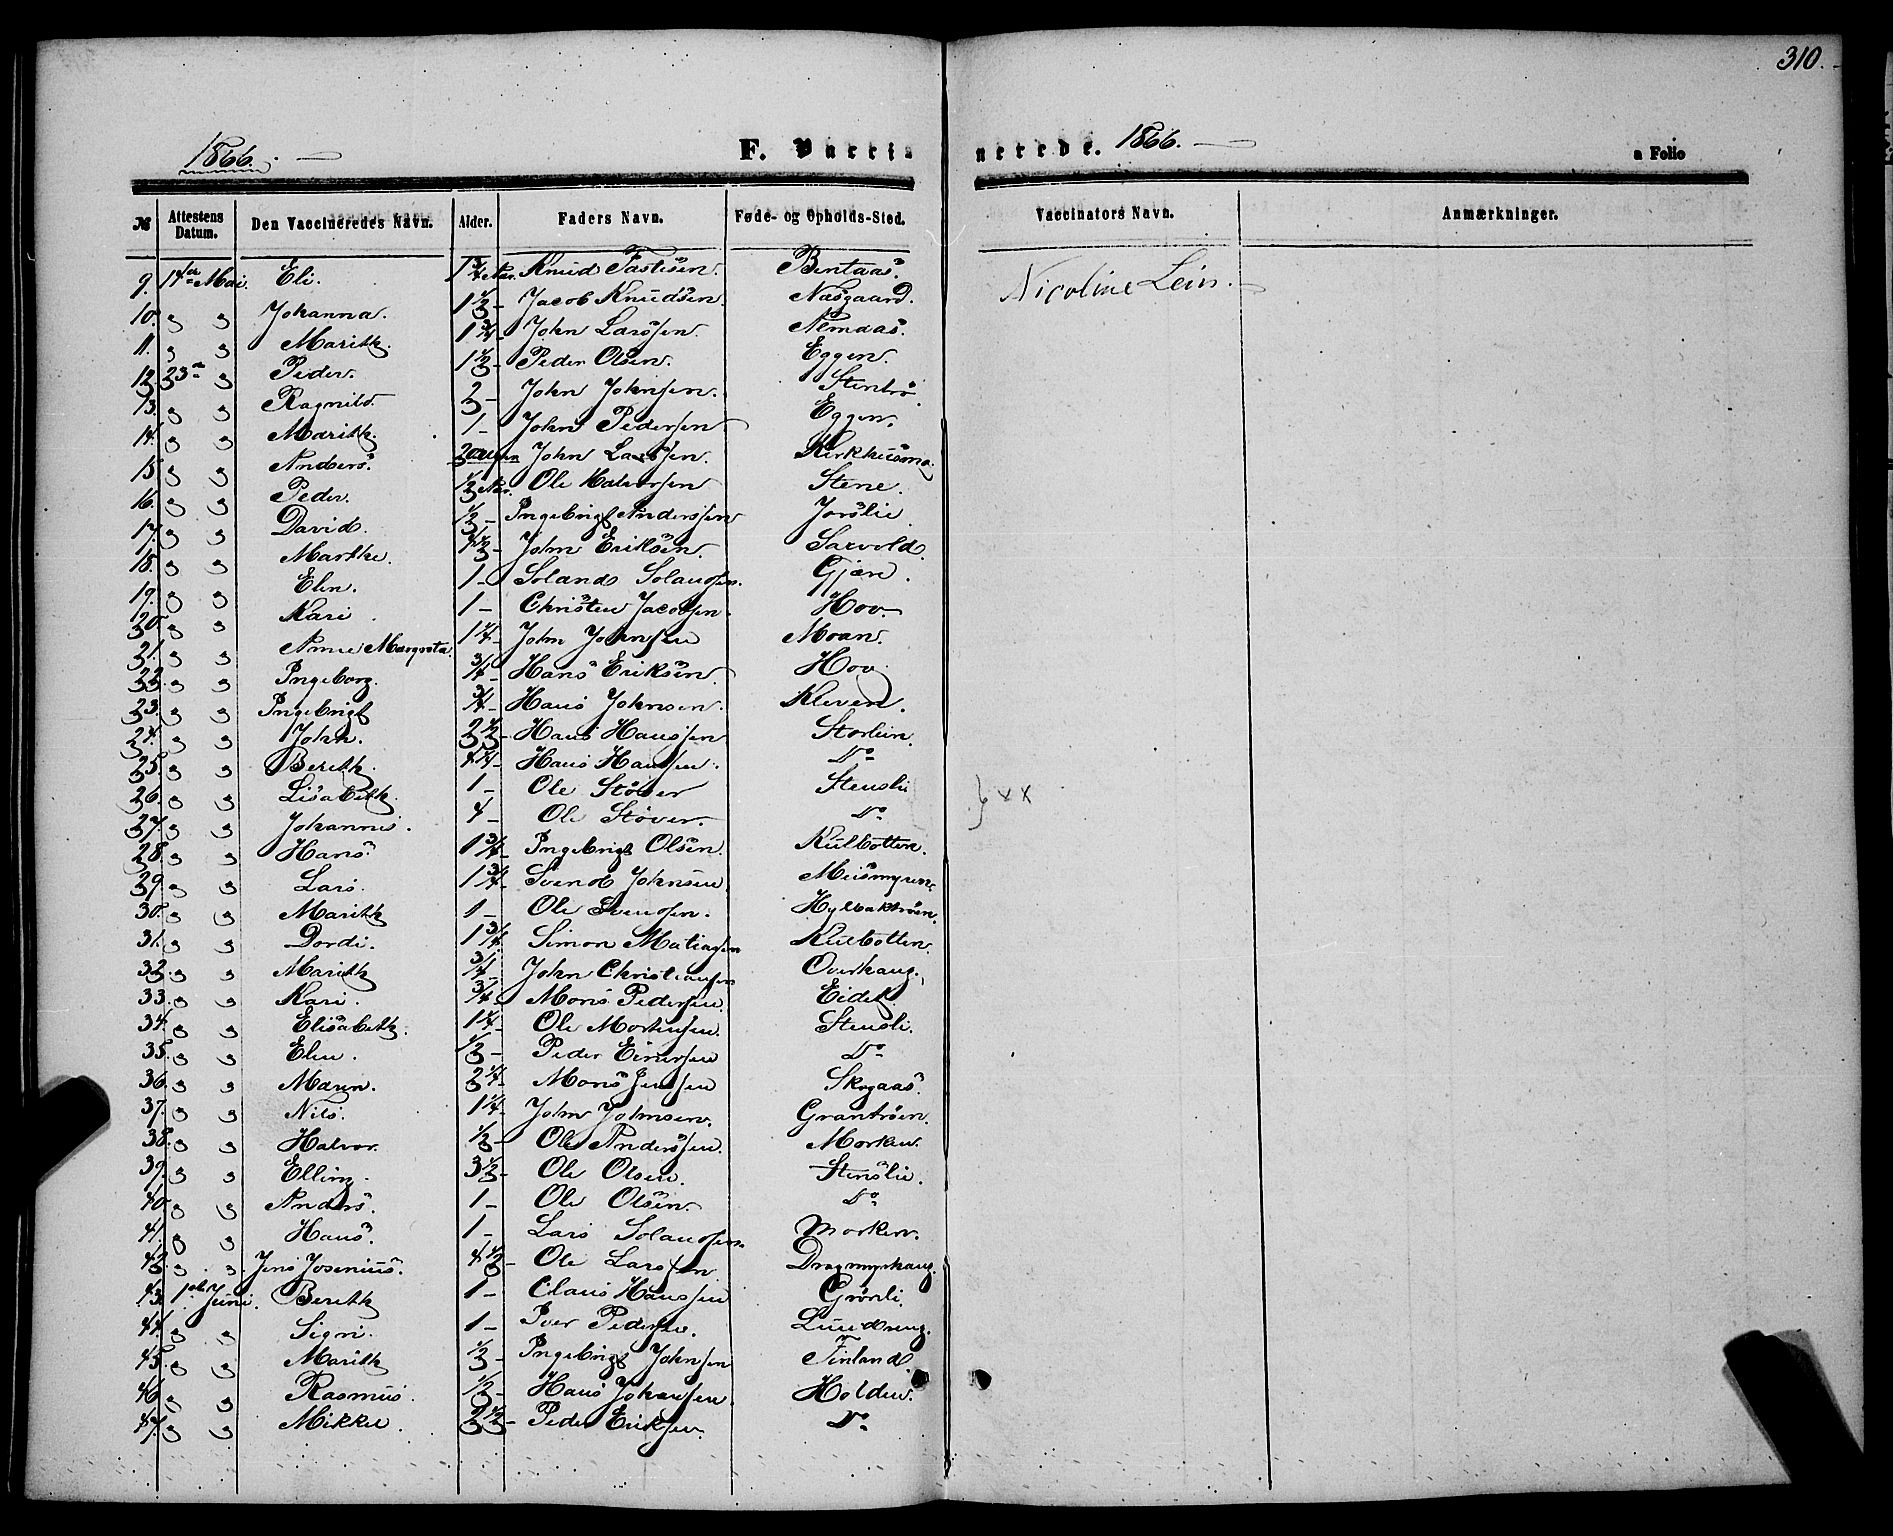 310.
1866. F. Vaccinerede. 1866. a Folio
№ Attestens Datum. Den Vaccineredes Navn. Alder. Faders Navn. Føde- og Opholds-Sted. Vaccinators Navn. Anmærkninger.
9. 14de Mai Eli. 1 3/4 Aar. Knud Bentaas. Nicoline Lein.
10. " " Johanna. 1 1/2 - Jacob Knudsen. Næsgaard.
11. " " Marith. John Larssen.
12. 23de " Peder. 1 1/2 - Peder Olsen. Eggen.
13. " " Ragnild. 2 - John Johnsen.
14. " " Marith. 1 - John Pedersen Eggen.
15. " " Anders. John Larssen. Kirkhusmo.
16. " " Peder. 1/2 Aar. Ole Halvorsen Stene.
17. " " David. 1/2 - Ingebrigt Anderssen Jorslie.
18. " " Marthe. John Eriksen. Sarvold.
19. " " Elen. 1 - Gjære.
20. " " Kari. 1 - Christen Jacobsen. Hov.
21. " " Anne Margreta. 1 1/4 - John Johnsen Moan.
22. " " Ingeborg. 3/4 - Hans Eriksen. Hov.
23. " " Ingebrigt 3/4 - Hans Johnsen. Kleven.
24. " " John. 2 1/2 - Hans Hanssen Storlien.
25. " " Berith. 4 1/4 - Hans Hanssen. Do
26. " " Lisabeth. 1 - Ole Støver Stensli } xx
27. " " Johannes. 4 - Ole Støver. Do
28. " " Hans. 1 3/4 - Ingebrigt Olsen. Kulbotten.
29. " " Lars. 1 3/4 - Svend Johnsen.
30. " " Marith 1 - Ole Hylbaktrøen.
31. " " Dordi. 1 3/4 - Simon Kulbotten.
32. " " Marith 3/4 - John Christiansen Overhaug.
33. " " Kari. 3/4 - Mons Pedersen Eidet.
34. " " Elisabeth. 1 1/4 - Ole Mortensen. Stensli.
35. " " Elen. 1/2 - Peder Einersen Do
36. " " Maren. 2 1/4 - Mons Jenssen Skogaas.
37. " " Nils. 1 1/4 - John Johnsen. Grantrøen.
38. " " Halvor. 1/2 - Ole Anderssen. Morken.
39. " " Elling. 3 1/2 - Ole Olsen. Stenslie.
40. " " Anders. 1 - Ole Olsen. Do
41. " " Hans. 1 - Lars Morken.
42. " " Jens Josenius. 4 1/2 - Ole Larssen Dragmyrhaug.
43. 1ste Juni. Berith 1 - Claus Hanssen Grønli.
44. " " Sigri. 1 - Iver Pedersen.
45. " " Marith 1/2 - Ingebrigt Johnsen Finland.
46. " " Rasmus. 1/2 - Hans Johansen Holden.
47. " " Mikkel. 2 1/2 - Peder Eriksen. Do